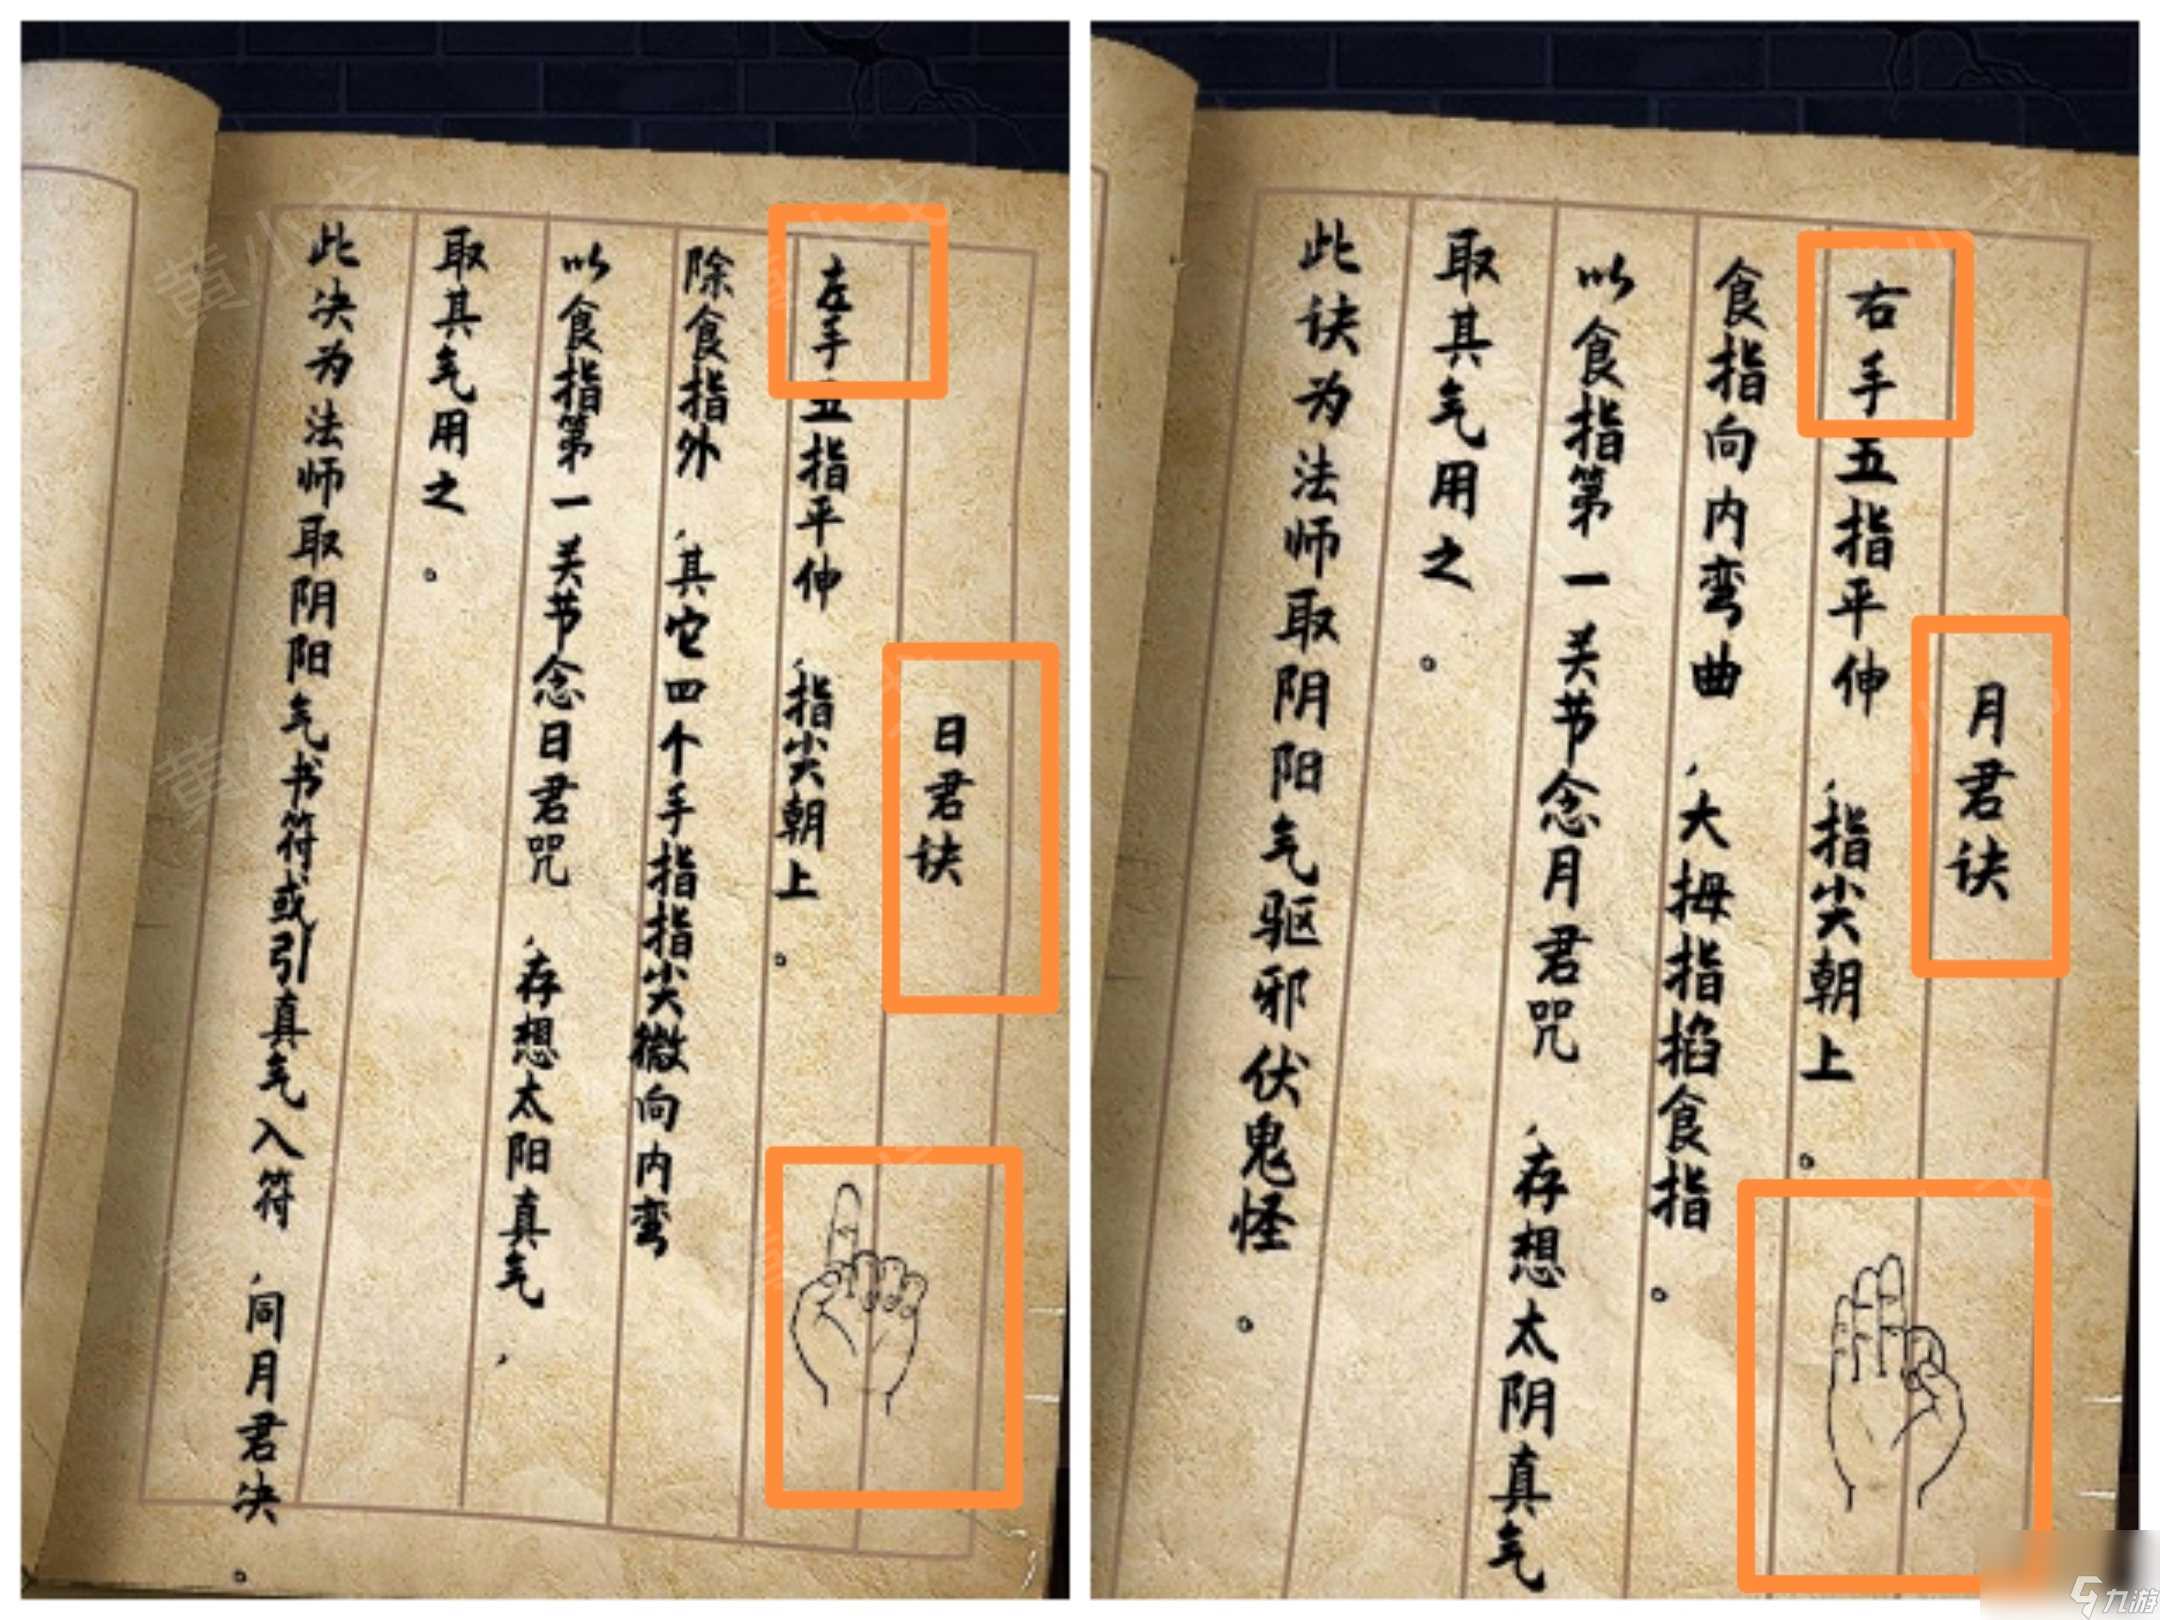 日君诀
左手五指平伸，指尖朝上。
除食指外，其它四个手指指尖微向内弯
以食指第一关节念日君咒，存想太阳真气，
取其气用之。
此决为法师取阴阳气书符或引真气入符，同月君决。
月君诀
右手五指平伸，指尖朝上。
食指向内弯曲，大拇指掐食指。
以食指第一关节念月君咒，存想太阴真气
取其气用之。
此诀为法师取阴阳气驱邪伏鬼怪。
九游